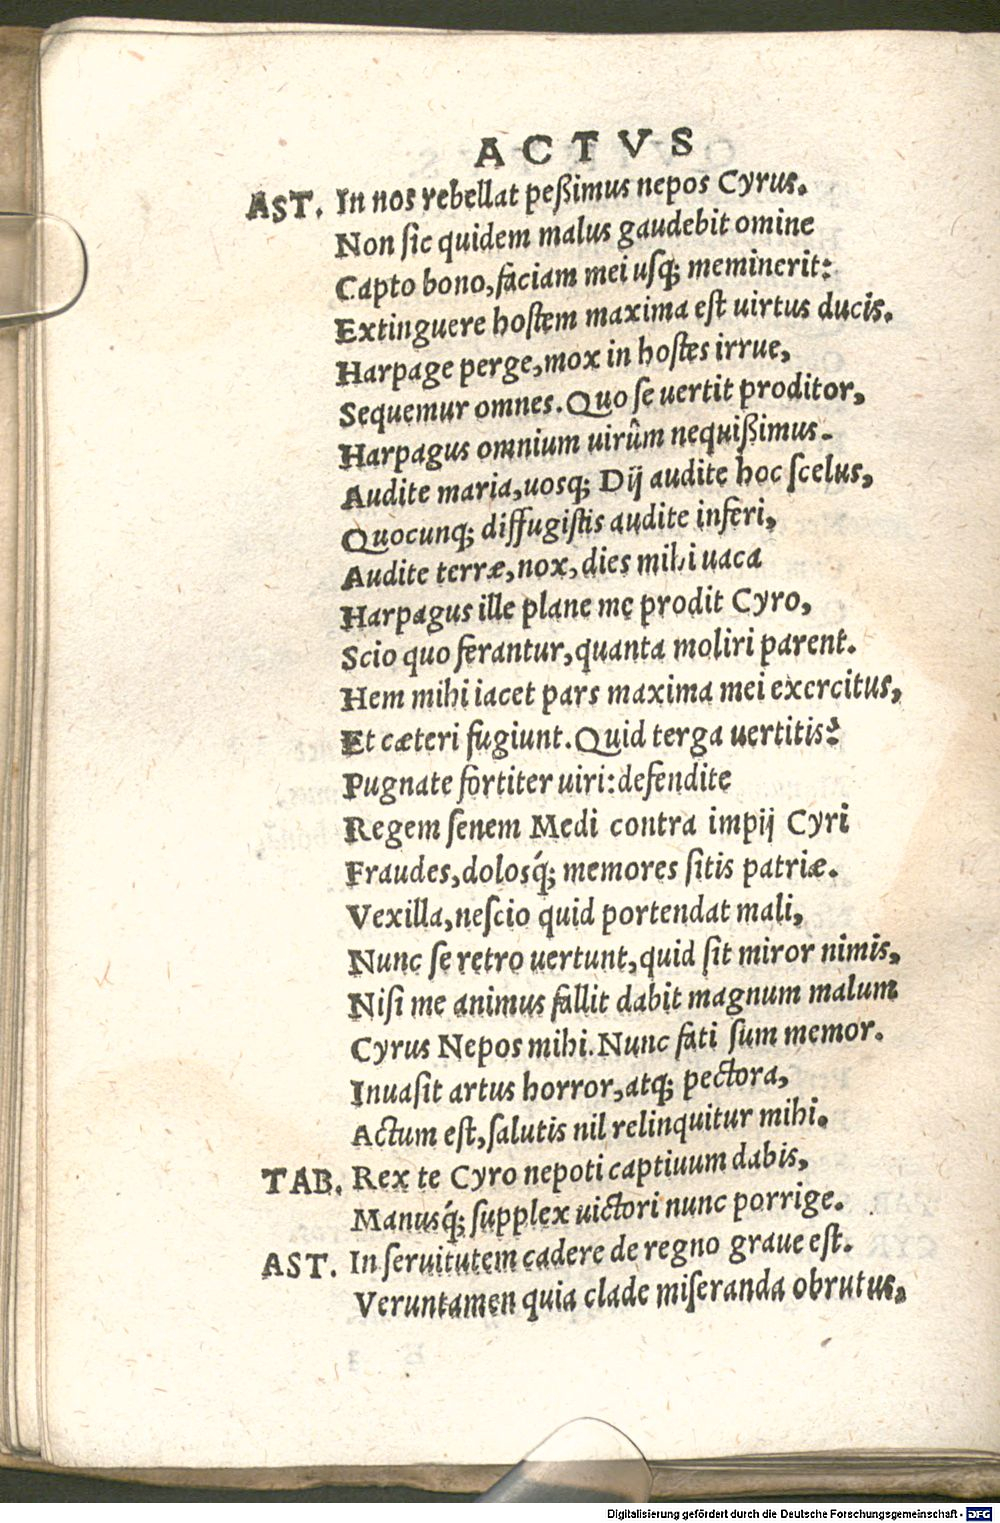 ACTVS
AST. In nos rebellat peßimus nepos Cyrus.
Non sic quidem malus gaudebit omine
Capto bono, faciam mei usq; meminerit:
Extinguere hostem maxima est uirtus ducis.
Harpage perge, mox in hostes irrue,
Sequemur omnes. Quo se uertit proditor,
Harpagus omnium uirûm nequißimus.
Audite maria, uosq; Dij audite hoc scelus,
Quocunq; diffugistis audite inferi,
Audite terræ, nox, dies mihi uaca
Harpagus ille plane me prodit Cyro,
Scio quo ferantur, quanta moliri parent.
Hem mihi iacet pars maxima mei exercitus,
Et cæteri fugiunt. Quid terga uertitis?
Pugnate fortiter uiri: defendite
Regem senem Medi contra impij Cyri
Fraudes, dolosq́; memores sitis patriæ.
Vexilla, nescio quid portendat mali,
Nunc se retro uertunt, quid sit miror nimis,
Nisi me animus fallit dabit magnum malum
Cyrus Nepos mihi. Nunc fati sum memor.
Inuasit artus horror, atq; pectora,
Actum est, salutis nil relinquitur mihi.
TAB. Rex te Cyro nepoti captiuum dabis,
Manusq́; supplex uictori nunc porrige.
AST. In seruitutem cadere de regno graue est.
Veruntamen quia clade miseranda obrutus,
Digitalisierung gefördert durch die Deutsche Forschungsgemeinschaft - DFG